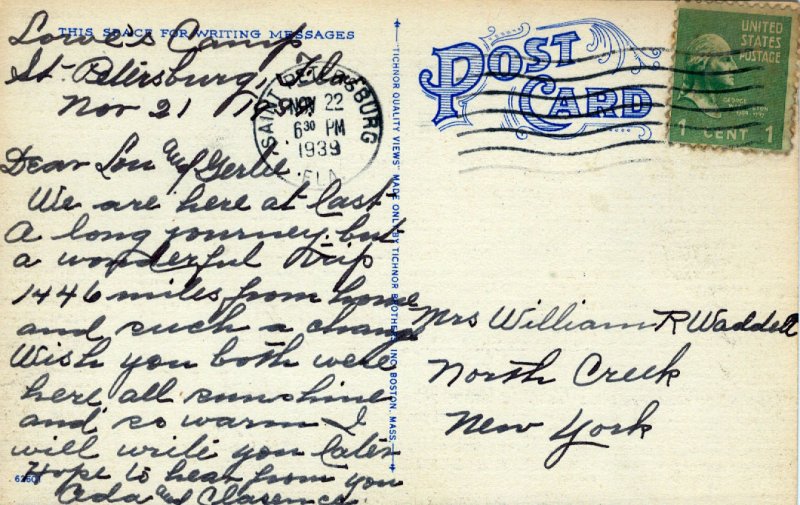 THIS SPACE FOR WRITING MESSAGES
Lowe's Camp
St. Petersburg, Fla.
Nov 21
Dear Lou and Gertie
We are here at last
A long journey but
a wonderful trip
1446 miles from home
and such a change
Wish you both were
here all sunshine
and so warm I
will write you later
Hope to hear from you
Ada and Clarence.
TICHNOR QUALITY VIEWS MADE ONLY BY TICHNOR BROTHERS, INC. BOSTON, MASS.
SAINT PETERSBURG
NOV 22
6 30 PM
1939
FLA.
POST
CARD
UNITED
STATES
POSTAGE
GEORGE
WASHINGTON
1 CENT 1
Mrs William R Waddell
North Creek
New York